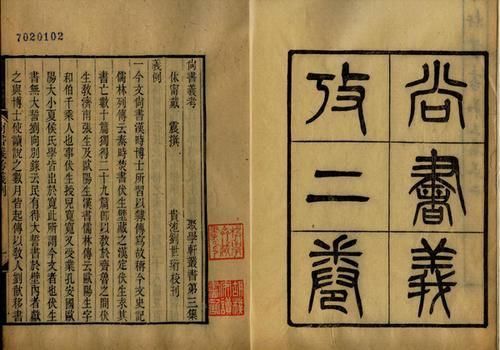 尚書義
攷二卷
7020102
尚書義考
聚學軒叢書第三集
休甯戴 震撰
貴池劉世珩校刊
義例
一今文尚書漢時博士所習以隸傳寫故稱今文史記
儒林列傳云秦時焚書伏生壁藏之漢定伏生求其
書亡數十篇獨得二十九篇卽以敎於齊魯之間伏
生敎濟南張生及歐陽生漢書儒林傳云歐陽生字
和伯千乘人也事伏生授兒寬寬又受業孔安國歐
陽大小夏侯氏學皆出於寬此所謂今文者也伏生
書無大誓劉向別錄云民有得大誓書於壁內者獻
之與博士使讀說之數月皆起傳以敎人劉歆移書